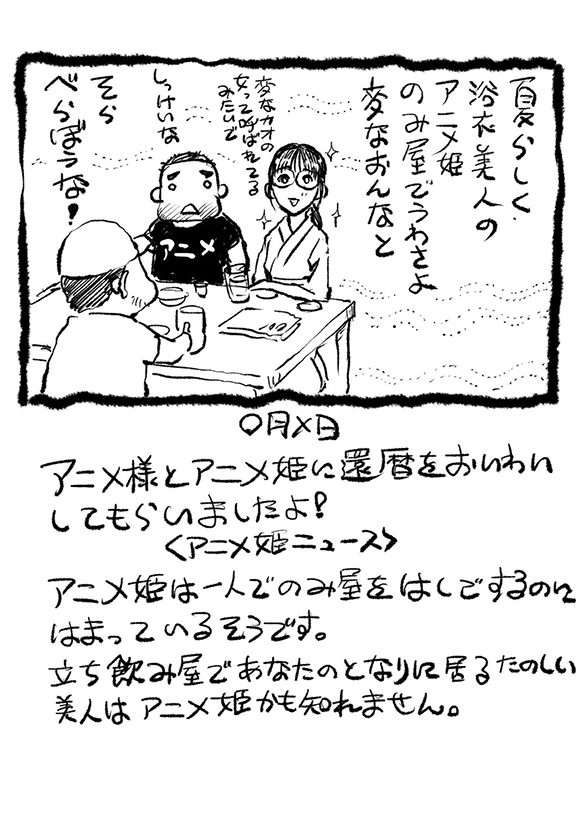 夏らしく
浴衣美人の
アニメ姫
のみ屋でうわさよ
変なおんなと
変なカオの
女って呼ばれてる
みたいで
しっけいな
そら
べらぼうな!
アニメ
〇月×日
アニメ様とアニメ姫に還暦をおいわい
してもらいましたよ!
<アニメ姫ニュース>
アニメ姫は一人でのみ屋をはしごするのに
はまっているそうです。
立ち飲み屋であなたのとなりに居るたのしい
美人はアニメ姫かも知れません。